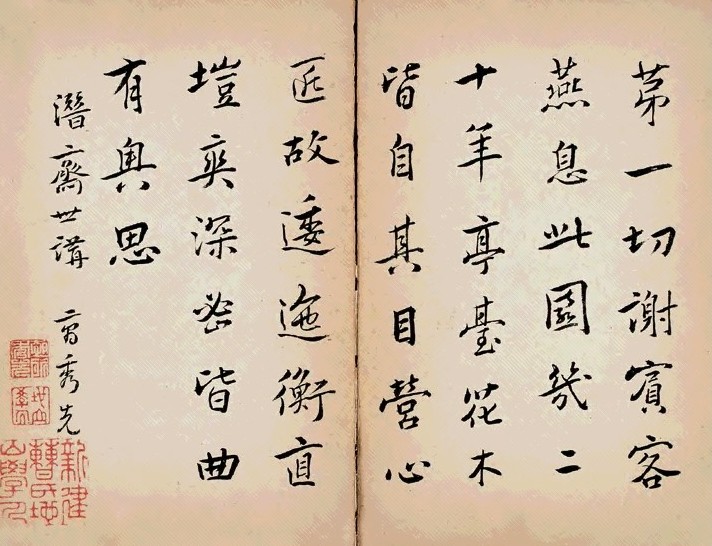 苐一切謝賓客
燕息此園幾二
十年亭臺花木
皆自其目營心
匠故逶迤衡直
塏爽深密皆曲
有奧思
潛齋世講 曹秀先
新建